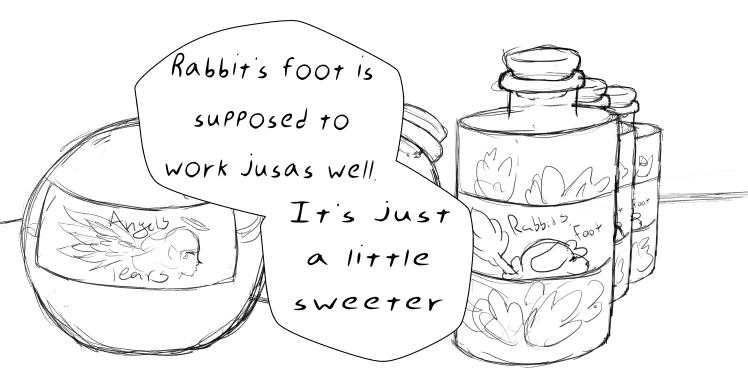 Rabbit's foot is
supposed to
work jusas well.
It's just
a little
sweeter
Angels
Tears
Rabbits
foot
foot